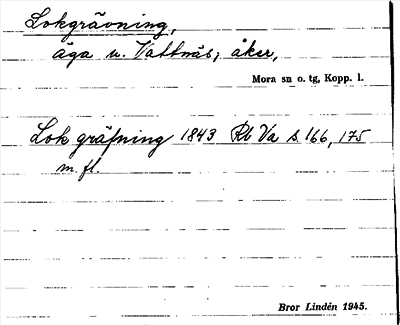 Lokgrävning,
äga u. Vattnäs; åker,
Mora sn o. tg, Kopp. l.
Lok gräfning 1843 Rb Va s. 166, 175
m. fl.
Bror Lindén 1945.